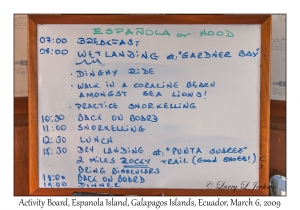 ESPAÑOLA or HOOD
07:00 BREAKFAST
08:00 WET LANDING at: "GARDNER BAY"
· DINGHY RIDE
· WALK IN A CORALINE BEACH
AMONGST SEA LIONS!
· PRACTICE SNORKELLING
10:30 BACK ON BOARD
11:00 SNORKELLING
12:30 LUNCH
DRY LANDING at "PUNTA SUAREZ"
2 MILES ROCKY TRAIL (GOOD SHOES!)
BRING BINOCULARS
18:00 BACK ON BOARD
19:00 DINNER
© Larry L Jackson
Activity Board, Espanola Island, Galapagos Islands, Ecuador, March 6, 2009